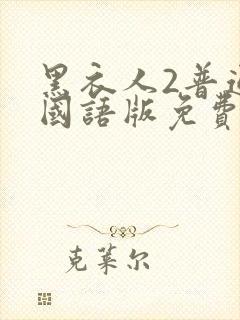 黑衣人2普通
國語版免費
克萊尔